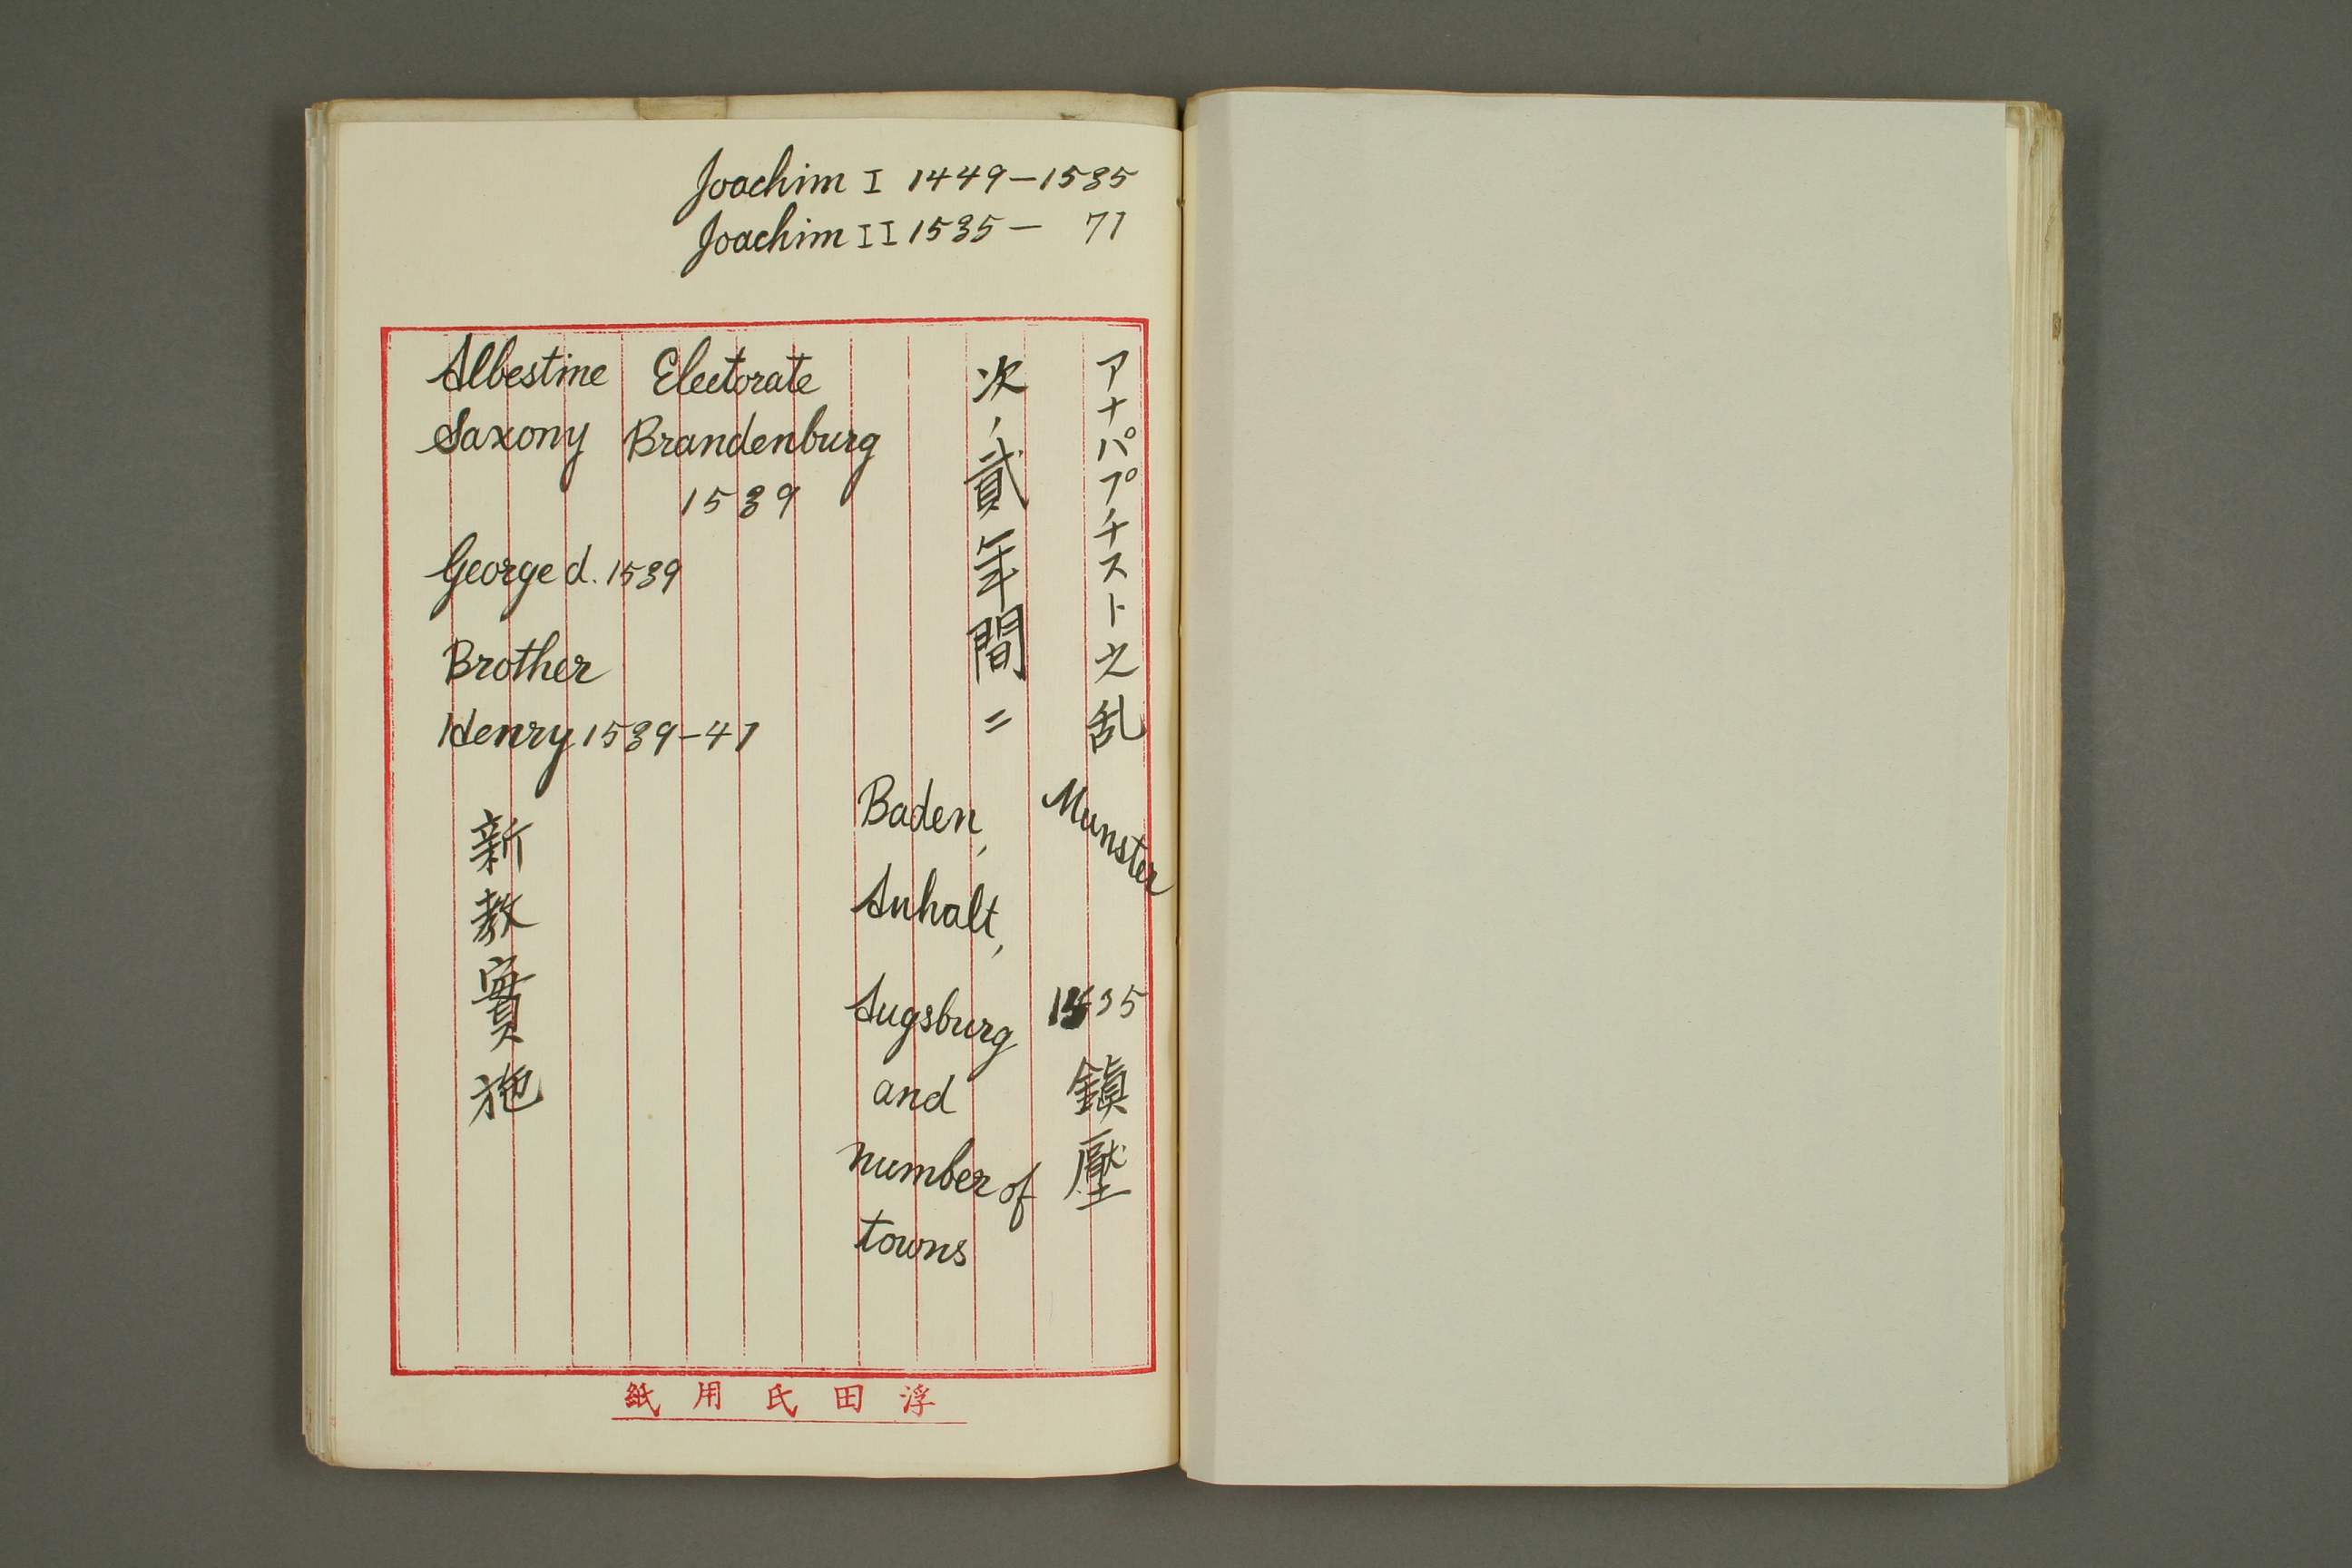 Joachim I 1449-1535
Joachim II 1535- 71
アナパプチスト之乱
Munster
1535
鎮壓
次ノ貳年間ニ
Baden,
Anhalt,
Augsburg
and
number of
towns
Albestine Electorate
Saxony Brandenburg
1539
George d. 1539
Brother
Henry 1539-41
新教實施
浮田氏用紙